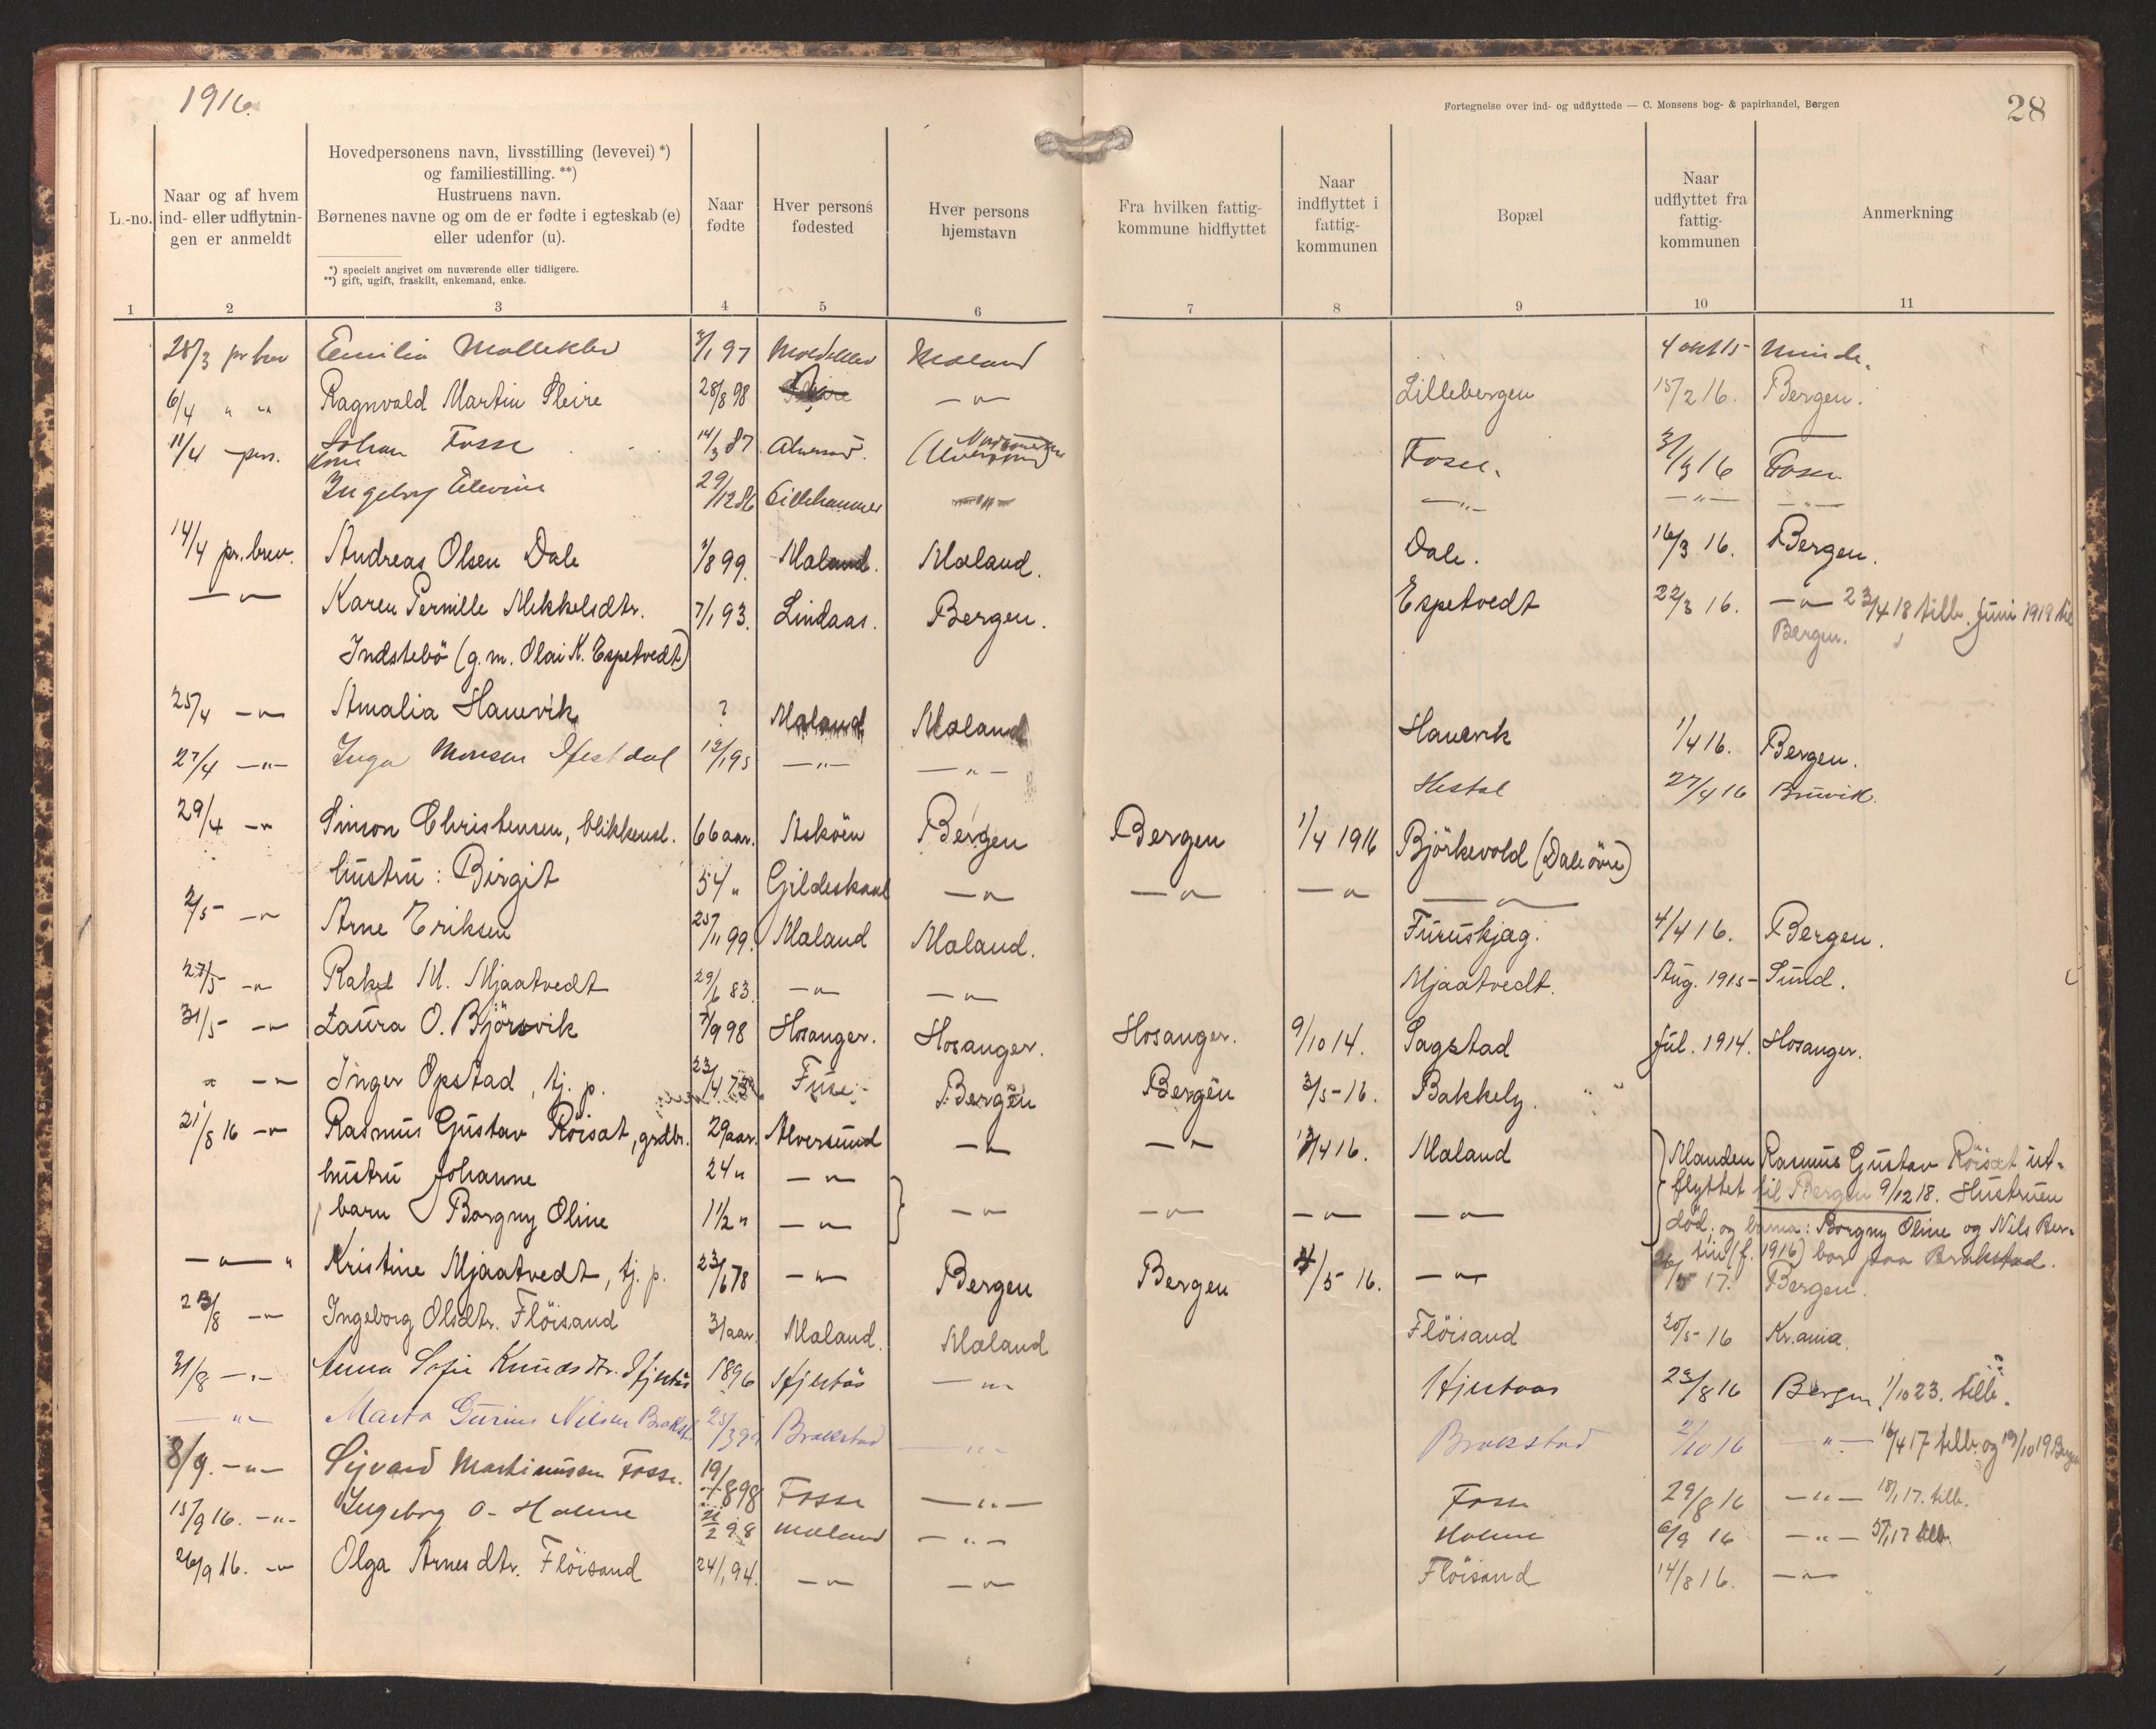 1916.
Fortegnelse over ind- og udflyttede — C. Monsens bog- & papirhandel, Bergen
28
L.-no.
Naar og af hvem ind- eller udflytnin- gen er anmeldt
Hovedpersonens navn, livsstilling (levevei) *)
og familiestilling. **)
Hustruens navn.
Børnenes navne og om de er fødte i egteskab (e)
eller udenfor (u).
*) specielt angivet om nuværende eller tidligere.
**) gift, ugift, fraskilt, enkemand, enke.
Naar fødte
Hver persons fødested
Hver persons hjemstavn
Fra hvilken fattig- kommune hidflyttet
Naar indflyttet i fattig- kommunen
Bopæl
Naar udflyttet fra fattig- kommunen
Anmerkning
1 2 3 4 5 6 7 8 9 10 11
28/3 pr brev Emilia 97 Mæland 15 Minde.
6/4 " " Ragnvald Martin Fleire 28/8 98 — " — Lillebergen 15/2 16. Bergen.
11/4 pers. Johan Fosse 14/3 87 Alversund. (Alversund) Fosse. 16 Fosse
Kone Ingeborg 29/12 86 Lillehammer — " — — " — — " —
14/4 pr. brev. Andreas Olsen Dale 1/8 99. Mæland. Mæland. Dale. 16/3 16. Bergen.
— " — Karen Pernille Mikkelsdtr. 7/1 93. Lindaas. Bergen. Espetvedt 22/3 16. — " — 23/4 18 tilb. Juni 1919 til
Indstebö (g. m. Olai K. Espetvedt) Bergen.
25/4 — " — Amalia Hanevik ? Mæland Mæland Hanevik 1/4 16. Bergen.
27/4 — " — Inga Monsen Hestdal 12/1 95 — " — — " — Hestal 27/4 16 Bruvik.
29/4 — " Simon Christensen, blikkensl. 66 aar. Askøen Bergen Bergen 1/4 1916 Björkevold (Dale övre)
hustru: Birgit 54 " Gildeskaal — " — — " — — " — — " —
2/5 — " Arne Eriksen 25/11 99. Mæland Mæland. Furuskjæg. 4/4 16. Bergen.
27/5 — " Rakel M. Mjaatvedt 29/6 83. — " — — " — Mjaatvedt. Aug. 1915 — Sund.
31/5 — " Laura O. Björsvik 7/9 98 Hosanger. Hosanger. Hosanger. 9/10 14. Sagstad Jul. 1914. Hosanger.
" — " Inger Opstad, tj. p. 23/4 73 Fuse. Bergen Bergen 3/5 - 16. Bakkely.
21/8 16 — " Rasmus Gustav Röisæt, grdbr. 29 aar. Alversund — " — — " — 4 16. Mæland Manden Rasmus Gustav Röisæt ut-
hustru Johanne 24 " — " — flyttet til Bergen 9/12 18. Hustruen
barn Borgny Oline 1 1/2 " — " — — " — — " — — " — — " — död; og barna: Borgny Oline og Nils Ber-
tin (f. 1916) bor paa Brakstad.
— " — " Kristine Mjaatvedt, tj. p. 23/6 78 — " — Bergen Bergen 4/5 16. — " — 17. Bergen.
23/8 — " Ingeborg Olsdtr. Flöisand 31 aar. Mæland. Mæland Flöisand 20/5 - 16 Kr.ania.
31/8 — " — Anna Sofie Knudsdtr. Hjertås 1896 Hjertås — " — Hjertaas 23/8 16 Bergen 1/10 23. tilb.
— " — Marta Gurine Nilsen Brakst. Brakstad — " — Brakstad 2/10 16 — " — 16/4 17 tilb. og 19/10 19 Bergen
8/9. — " — Sigvard Martinusen Fosse. 19/ 98 Fosse — " — Fosse 29/8 16 — " — 18/1 17. tilb.
15/9 16. — " — Ingeborg O- Holme /2 98 Mæland — " — Holme 6/9 16 — " — 17 tilb.
26/9 16. — " Olga Arnesdtr. Flöisand 24/1 94. — " — — " — Flöisand 14/8 16. — " —